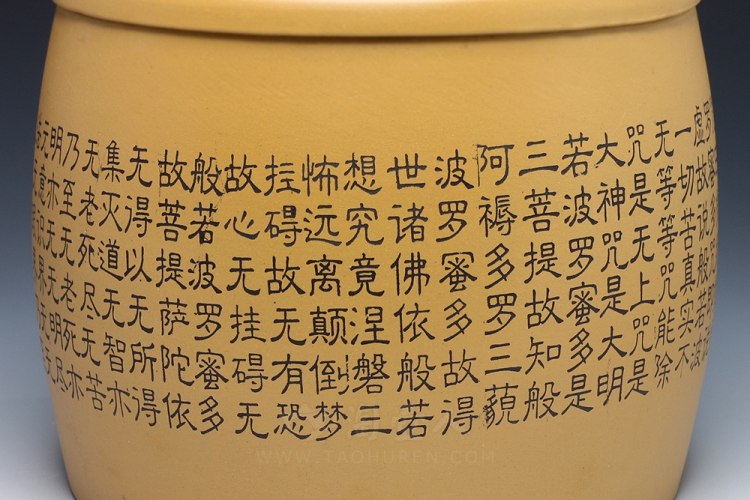 无意识界无无
明亦无无明尽
乃至无老死亦
无老死尽无苦
集灭道无智亦
无得以无所得
故菩提萨陀依
般若波罗蜜多
故心无挂碍无
挂碍故无有恐
怖远离颠倒梦
想究竟涅磐三
世诸佛依般若
波罗蜜多故得
阿褥多罗三藐
三菩提故知般
若波罗蜜多是
大神咒是大明
咒是无上咒是
无等等咒能除
一切苦真实不
虚故说般若波
罗蜜多
WWW.TAOHUREN.COM